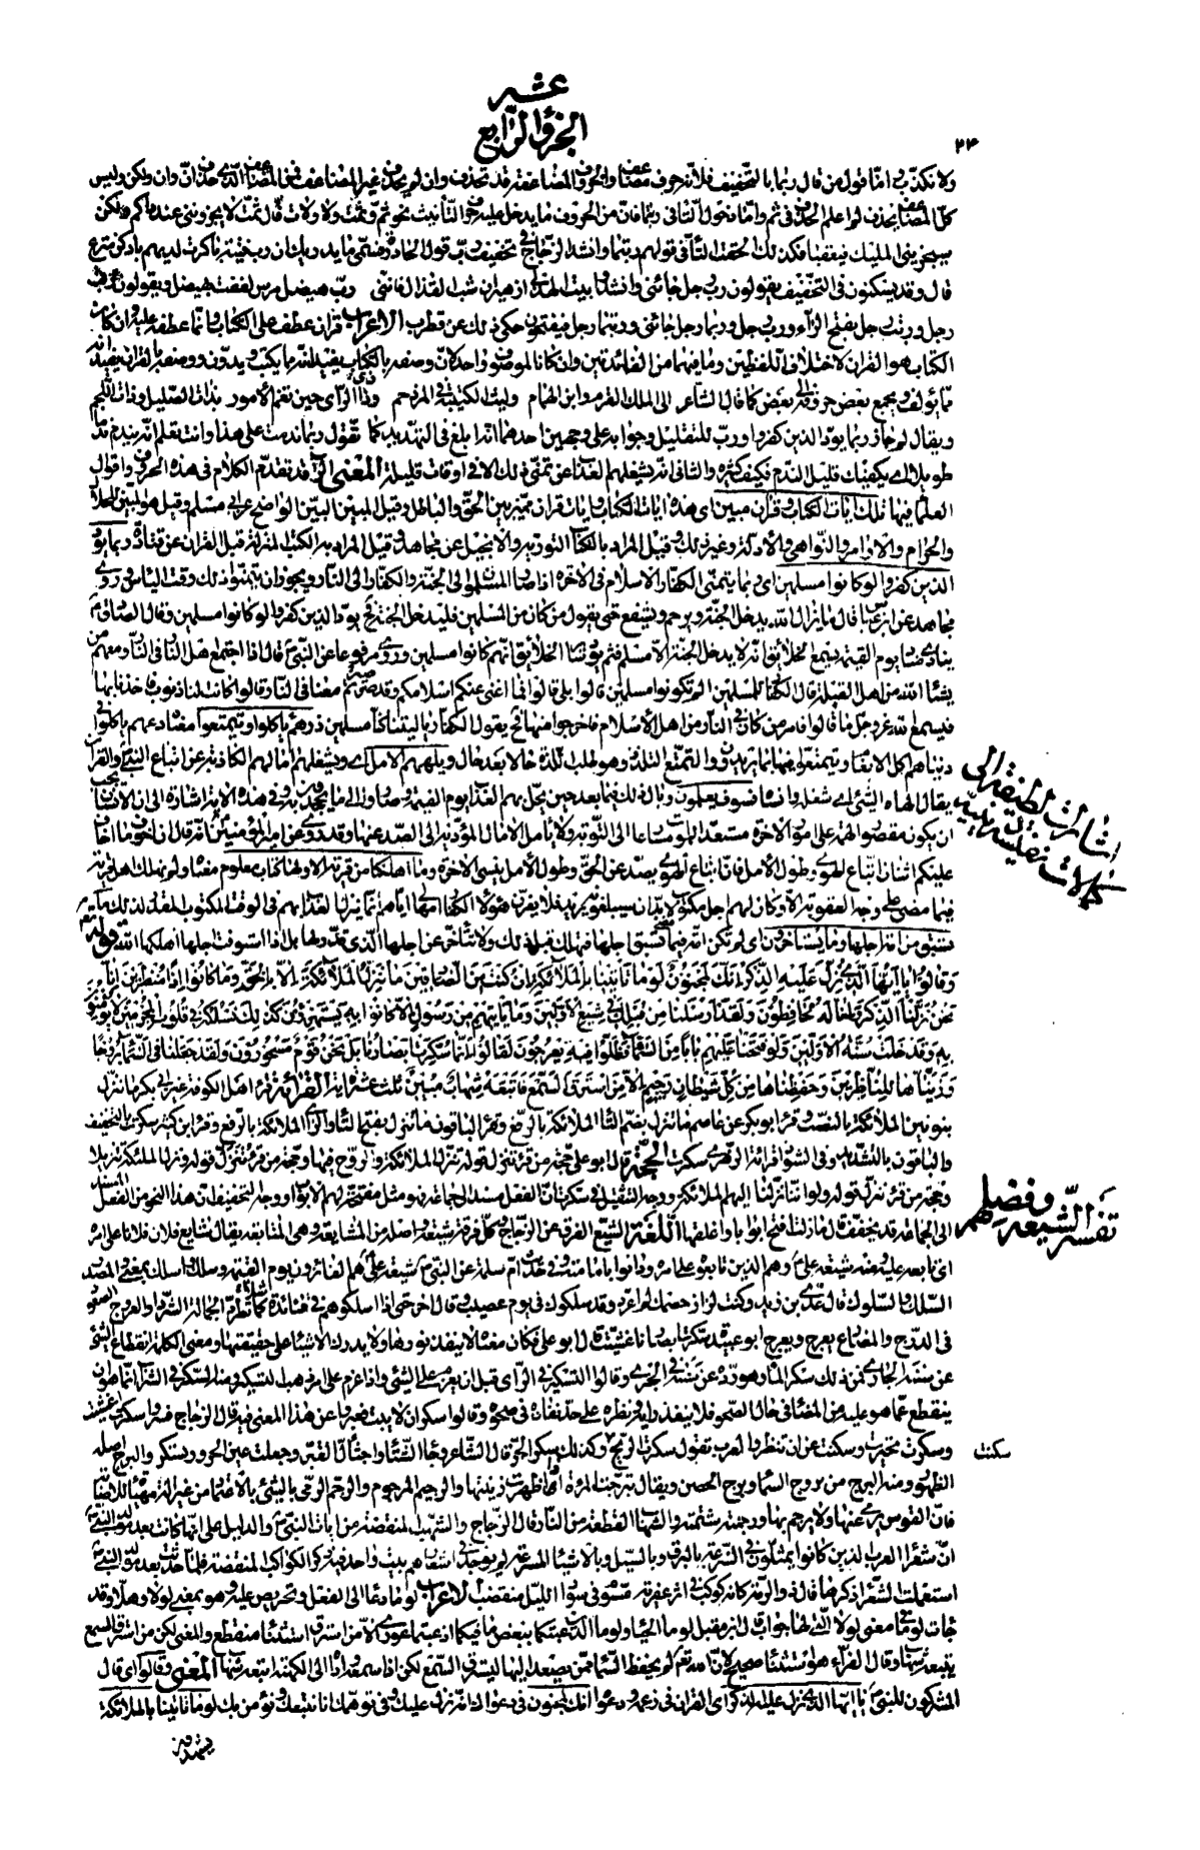 عشر
الجزؤ الرابع
۲۴
ولا تكذب اما قول من قال ربما بالتخفيف فلانه حرف مضاعف والحروف المضاعفة قد تحذف وان لم يحذف غير المضاعف فمن المضاعف الذي حذف ان وان ولكن وليس
كل المضاعف يحذف لم اعلم الحذف في ثم واما دخول التاء في ربتما فان من الحروف ما يدخل عليه حرف التأنيث نحو ثم وثمت ولا ولات قال ثمت لا يجزونني عند ذاكم ولكن
سيجزيني المليك فيعقبا فكذلك الحقت التاء في قولهم ربتما وانشد الزجاج في تخفيف رب قول الحادرة
قال وقد يسكنون في التخفيف يقولون رب رجل جائني وانشدوا بيت الهذلي ازهير ان يشب القذال فانني رب هيضل مرس لففت بهيضل ويقولون ربت
رجل وربت رجل بفتح الراء ورب رجل وربما رجل جائني وربتما رجل فيفتحون حكى ذلك عن قطرب الاعراب قران عطف على الكتاب وانما عطفه عليه وان كان
الكتاب هو القران لاختلاف اللفظين وما فيهما من الفائدتين وان كانا لموصوف واحد لان وصفه بالكتاب يفيد انه مما يكتب ويدون ووصفه بالقران يفيد انه
مما يؤلف ويجمع بعض حروفه الى بعض كما قال الشاعر الى الملك القرم وابن الهمام وليث الكتيبة في المزدحم وذا الراي حين تغم الامور بذات الصليل وذات اللجم
ويقال لم جاز ربما يود الذين كفروا ورب للتقليل وجوابه على وجهين احدهما انه ابلغ في التهديد كما تقول ربما ندمت على هذا وانت تعلم انه يندم ندما
طويلا اي يكفيك قليل الندم فكيف كثيره والثاني انه يشغلهم العذاب عن تمني ذلك الا في اوقات قليلة المعنى الر قد تقدم الكلام في هذه الحروف واقوال
العلماء فيها تلك ايات الكتاب وقران مبين اي هذه ايات الكتاب وايات قران مميز بين الحق والباطل وقيل المبين البين الواضح عن ابي مسلم وقيل هو المبين للحلال
والحرام والاوامر والنواهي والادلة وغير ذلك وقيل المراد بالكتاب التورية والانجيل عن مجاهد وقيل المراد به الكتب المنزلة قبل القران عن قتادة ربما يود
الذين كفروا لو كانوا مسلمين اي ربما يتمنى الكفار الاسلام في الاخرة اذا صار المسلمون الى الجنة والكفار الى النار ويجوز ان يتمنوا ذلك وقت الياس وروى
مجاهد عن ابن عباس قال ما يزال الله يدخل الجنة ويرحم ويشفع حتى يقول من كان من المسلمين فليدخل الجنة فح يود الذين كفروا لو كانوا مسلمين وقال الصادق ع
ينادي مناد يوم القيمة يسمع الخلائق انه لا يدخل الجنة الا مسلم فثم يود سائر الخلائق انهم كانوا مسلمين وروى مرفوعا عن النبي ص قال اذا اجتمع اهل النار في النار ومعهم من
يشاء الله من اهل القبلة قال الكفار للمسلمين الم تكونوا مسلمين قالوا بلى قالوا فما اغنى عنكم اسلامكم وقد صرتم معنا في النار قالوا كانت لنا ذنوب فاخذنا بها
فيسمع الله عز وجل ما قالوا فامر من كان في النار من اهل الاسلام فاخرجوا منها فح يقول الكفار يا ليتنا كنا مسلمين ذرهم ياكلوا ويتمتعوا معناه دعهم ياكلوا في
دنياهم اكل الانعام ويتمتعوا فيها بما يريدون والتمتع التلذذ وهو طلب اللذة حالا بعد حال ويلههم الامل اي وتشغلهم امالهم الكاذبة عن اتباع النبي ص والقران
يقال الهاه الشيء اي شغله وانساه فسوف يعلمون وبال ذلك فيما بعد حين يحل بهم العذاب يوم القيمة وصاروا الى ما يجحدون به وفي هذه الاية اشارة الى ان الانسان يجب
ان يكون مقصور الهمة على امور الاخرة مستعدا للموت مسارعا الى التوبة ولا يامل الامال المؤدية الى الصد عنها وقد روى عن امير المؤمنين ع انه قال ان اخوف ما اخاف
عليكم اثنان اتباع الهوى وطول الامل فان اتباع الهوى يصد عن الحق وطول الامل ينسي الاخرة وما اهلكنا من قرية الا ولها كتاب معلوم معناه ولم نهلك اهل قرية
فيما مضى على وجه العقوبة الا وكان لهم اجل مكتوب لا بد ان سيبلغونه يريد فلا يغرن هؤلاء الكفار امهالي اياهم انما ينزل العذاب بهم في الوقت المكتوب المقدر لذلك ما
تسبق من امة اجلها وما يستاخرون اي لم تكن امة فيما مضى تسبق اجلها فتهلك قبل ذلك ولا تتأخر عن اجلها الذي قدر لها بل اذا استوفت اجلها اهلكها الله قوله تعالى
وَقالُوا يا اَيُّهَا الَّذي نُزِّلَ عَلَيْهِ الذِّكْرُ اِنَّكَ لَمَجْنُونٌ لَوْ ما تَأْتينا بِالْمَلائِكَةِ اِنْ كُنْتَ مِنَ الصّادِقينَ ما نُنَزِّلُ الْمَلائِكَةَ اِلاّ بِالْحَقِّ وَما كانُوا اِذًا مُنْظَرينَ اِنّا
نَحْنُ نَزَّلْنَا الذِّكْرَ وَاِنّا لَهُ لَحافِظُونَ وَلَقَدْ اَرْسَلْنا مِنْ قَبْلِكَ في شِيَعِ الْاَوَّلينَ وَما يَأْتيهِمْ مِنْ رَسُولٍ اِلاّ كانُوا بِهِ يَسْتَهْزِؤُنَ كَذلِكَ نَسْلُكُهُ في قُلُوبِ الْمُجْرِمينَ لا يُؤْمِنُونَ
بِهِ وَقَدْ خَلَتْ سُنَّةُ الْاَوَّلينَ وَلَوْ فَتَحْنا عَلَيْهِمْ بابًا مِنَ السَّماءِ فَظَلُّوا فيهِ يَعْرُجُونَ لَقالُوا اِنَّما سُكِّرَتْ اَبْصارُنا بَلْ نَحْنُ قَوْمٌ مَسْحُورُونَ وَلَقَدْ جَعَلْنا فِي السَّماءِ بُرُوجًا
وَزَيَّنّاها لِلنّاظِرينَ وَحَفِظْناها مِنْ كُلِّ شَيْطانٍ رَجيمٍ اِلاّ مَنِ اسْتَرَقَ السَّمْعَ فَاَتْبَعَهُ شِهابٌ مُبينٌ ثلث عشرة اية القرائة قرء اهل الكوفة غير ابي بكر ما ننزل
بنونين الملائكة بالنصب وقرء ابو بكر عن عاصم ما تنزل بضم التاء الملائكة بالرفع وقرء الباقون ما تنزل بفتح التاء والزاي الملائكة بالرفع وقرء ابن كثير سكرت بالتخفيف
والباقون بالتشديد وفي الشواذ قرائة الزهري سكرت الحجة قال ابو علي حجة من قرء تنزل قوله تنزل الملائكة والروح فيها وحجة من قرء تنزل قوله ونزل الملئكة تنزيلا
وحجة من قرء ننزل قوله ولو اننا نزلنا اليهم الملائكة ووجه التثقيل في سكرت ان الفعل مسند الى جماعة فهو مثل مفتحة لهم الابواب ووجه التخفيف ان هذا النحو من الفعل المسند
الى الجماعة قد يخفف قال ما زلت افتح ابوابا واغلقها اللغة الشيع الفرق عن الزجاج وكل فرقة شيعة واصله من المشايعة وهي المتابعة يقال شايع فلان فلانا على امره
اي تابعه عليه ومنه شيعة علي ع وهم الذين تابعوه على امره ودانوا بامامته وفي حديث ام سلمة عن النبي ص شيعة علي هم الفائزون يوم القيمة وسلك واسلك بمعنى والمصدر
السلك والسلوك قال عدي بن زيد وكنت لزاز خصمك لم اعرد وقد سلكوك في يوم عصيب وقال اخر حتى اذا اسلكوهم في قتائدة شلا كما تطرد الجمالة الشردا والعروج الصعود
في الدرج والمضارع يعرج ويعرج ابو عبيدة سكرت ابصارنا غشيت قال ابو علي فكان معناه لا ينفذ نورها ولا يدرك الاشياء على حقيقتها ومعنى الكلمة انقطاع الشيء
عن سننه الجاري فمن ذلك سكر الماء وهو رده عن سننه في الجري وقالوا التسكير في الراي قبل ان يعزم على الشيء واذا عزم على امر ذهب التسكير ومنه السكر في الشراب انما هو ان
ينقطع عما هو عليه من المضاء في حال الصحو فلا ينفذ رايه ونظره على حد نفاذه في صحوه وقالوا سكران لا يبت فعبروا عن هذا المعنى فيه قال الزجاج فسروا سكرت اغشيت
وسكرت تحيرت وسكنت عن ان تنظر والعرب تقول سكرت الريح وكذلك سكر الحر قال الشاعر وجعلت عين الحرور تسكر والبرج اصله
الظهور ومنه البرج من بروج السماء وبرج الحصن ويقال تبرجت المراة اي اظهرت زينتها والرجيم المرجوم والرجم الرمي بالشيء بالاعتماد من غير الة مهيئة للاصابة
فان القوس يرمى عنها ولا يرجم بها ورجمته شتمته والشهاب القطعة من النار قال الزجاج والشهب المنقضة من ايات النبي ص والدليل على انها كانت بعد مولد النبي ص
ان شعراء العرب الذين كانوا يمثلون في السرعة بالبرق وبالسيل وبالاشياء المسرعة لم يوجد في اشعارهم بيت واحد فيه ذكر الكواكب المنقضة فلما حدثت بعد مولد النبي ص
استعملت الشعراء ذكرها قال ذو الرمة كانه كوكب في اثر عفرية مسوم في سواد الليل منقضب الاعراب لوما دعاء الى الفعل وتحريض عليه وهو بمعنى لولا وهلا وقد
جاءت لوما في معنى لولا التي لها جواب قال ابن مقبل لوما الحياء ولوما الدين عبتكما ببعض ما فيكما اذ عبتما عوري الا من استرق استثناء منقطع والمعنى لكن من استرق السمع
يتبعه شهاب وقال الفراء هو استثناء صحيح لان الله تعم لم يحفظ السماء ممن يصعد اليها ليسترق السمع لكن اذا سمعه واداه الى الكهنة اتبعه شهاب المعنى وقالوا اي قال
المشركون للنبي ص يا ايها الذي نزل عليه الذكر اي القران في زعمه ودعواه انك لمجنون في دعواك انه نزل عليك وفي توهمك انا نتبعك ونؤمن بك لوما تاتينا بالملائكة
اشارات لطيفة الى
كمالات نفسانية
تفسير الشيعة وفضلهم
سكنت
يشهدون